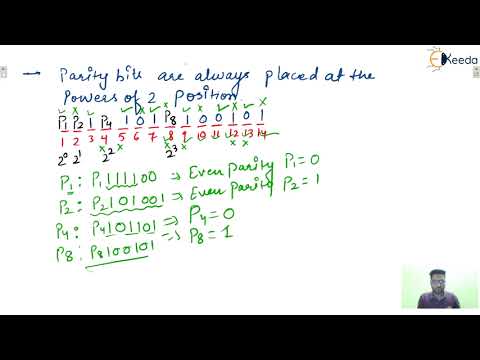 Ekeeda
→ Parity bits are always placed at the
Powers of 2 Position
P1 P2 1 P4 1 0 1 P8 1 0 0 1 0 1
1 2 3 4 5 6 7 8 9 10 11 12 13 14
2⁰ 2¹ 2² 2³
P1 : P1 111100 ⇒ Even Parity P1 = 0
P2 : P2 101001 ⇒ Even Parity P2 = 1
P4 : P4 101101 ⇒ P4 = 0
P8 : P8 100101 ⇒ P8 = 1